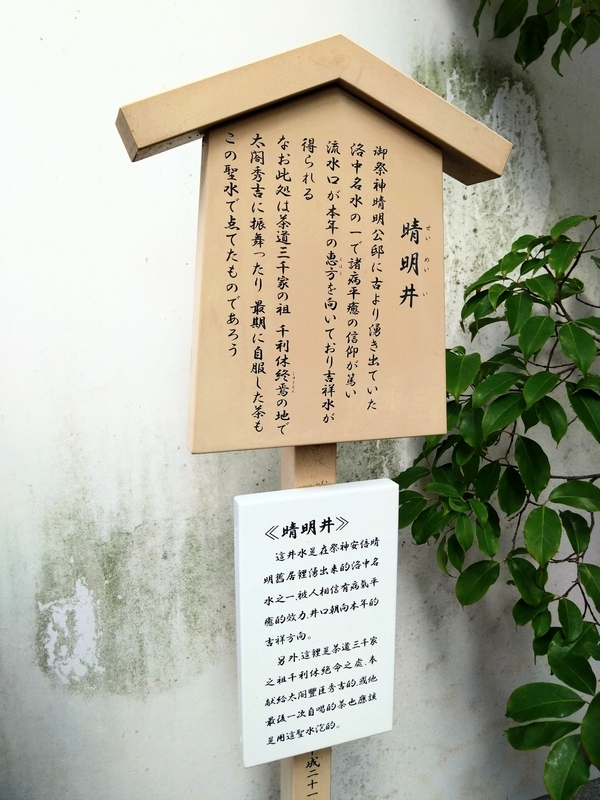 晴明井
せいめいい
御祭神晴明公邸に古より湧き出ていた
洛中名水の一で諸病平癒の信仰が篤い
流水口が本年の恵方を向いており吉祥水が
得られる
なお此処は茶道三千家の祖 千利休終焉の地で
太閤秀吉に振舞ったり 最期に自服した茶も
この聖水で点てたものであろう
≪晴明井≫
這井水是在祭神安倍晴
明舊居裡湧出来的洛中名
水之一,被人相信有病氣平
癒的效力,井口朝向本年的
吉祥方向。
另外,這裡是茶道三千家
之祖千利休絶命之處,奉
献給太閤豐臣秀吉的,或他
最後一次自喝的茶也應該
是用這聖水泡的。
成二十一